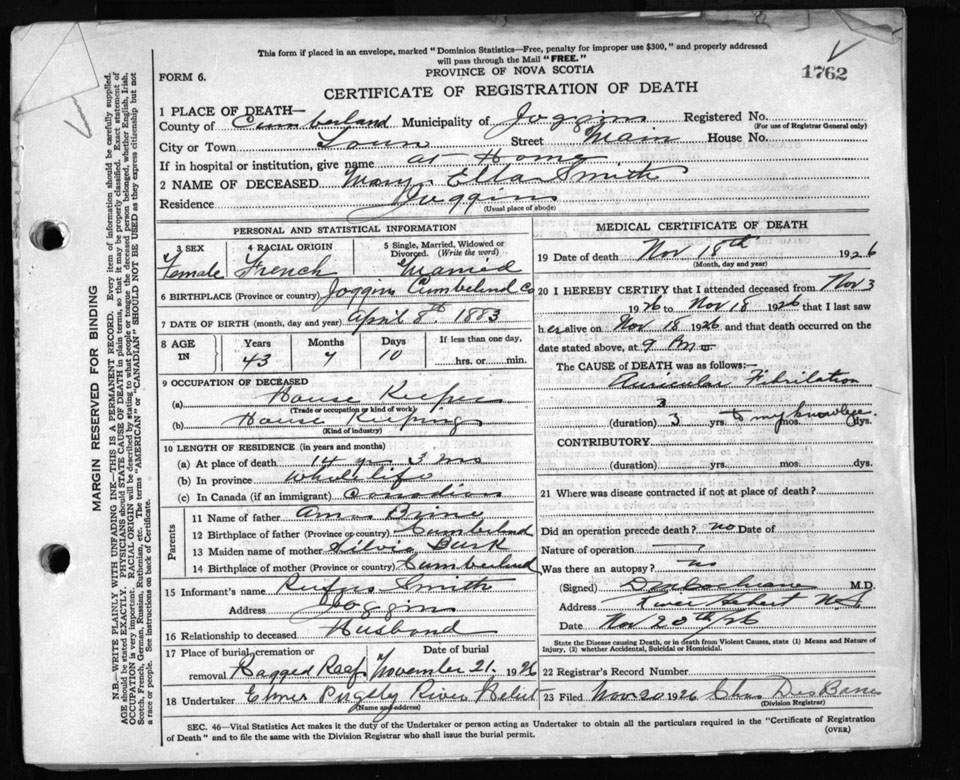 This form if placed in an envelope, marked "Dominion Statistics—Free, penalty for improper use $300," and properly addressed
will pass through the Mail "FREE."
FORM 6.
PROVINCE OF NOVA SCOTIA
1762
CERTIFICATE OF REGISTRATION OF DEATH
1 PLACE OF DEATH—
County of Cumberland Municipality of Joggins Registered No.
(For use of Registrar General only)
City or Town Town Street Main House No.
If in hospital or institution, give name at Home
2 NAME OF DECEASED Mary Ella Smith
Residence Joggins
(Usual place of abode)
PERSONAL AND STATISTICAL INFORMATION
3 SEX Female
4 RACIAL ORIGIN French
5 Single, Married, Widowed or Divorced. (Write the word) Married
6 BIRTHPLACE (Province or country) Joggins Cumbelind Co
7 DATE OF BIRTH (month, day and year) April 8th 1883
8 AGE IN
Years Months Days If less than one day,
43 7 10 hrs. or min.
9 OCCUPATION OF DECEASED
(a) House Keeper
(Trade or occupation or kind of work)
(b) House Keeping
(Kind of industry)
10 LENGTH OF RESIDENCE (in years and months)
(a) At place of death 14 yrs 3 mo
(b) In province Whole life
(c) In Canada (if an immigrant) Canadian
Parents
11 Name of father Amos Brine
12 Birthplace of father (Province or country) Cumberland
13 Maiden name of mother Silvia Burk
14 Birthplace of mother (Province or country) Cumberland
15 Informant's name Rufus Smith
Address Joggins
16 Relationship to deceased Husband
17 Place of burial, cremation or removal Ragged Reef
Date of burial November 21, 1926
18 Undertaker Elmer Pugsley River Hebert
(Name and address)
MEDICAL CERTIFICATE OF DEATH
19 Date of death Nov 18th 1926
(Month, day and year)
20 I HEREBY CERTIFY that I attended deceased from Nov 3
1926 to Nov 18 1926 that I last saw
her alive on Nov 18 1926 and that death occurred on the
date stated above, at 9 Pm
The CAUSE of DEATH was as follows:—
Auricular Fibrilation
(duration) 3 yrs. mos. dys. to my knowlege.
CONTRIBUTORY.
(duration) yrs. mos. dys.
21 Where was disease contracted if not at place of death?
Did an operation precede death? no Date of
Nature of operation
Was there an autopsy? no
(Signed) D Cochrane M.D.
Address River Hebert N.S
Date Nov 20th/26
State the Disease causing Death, or in death from Violent Causes, state (1) Means and Nature of
Injury, (2) whether Accidental, Suicidal or Homicidal.
22 Registrar's Record Number
23 Filed Nov 20 1926 Chas DesBarres
(Division Registrar)
SEC. 46—Vital Statistics Act makes it the duty of the Undertaker or person acting as Undertaker to obtain all the particulars required in the "Certificate of Registration
of Death" and to file the same with the Division Registrar who shall issue the burial permit.
(OVER)
MARGIN RESERVED FOR BINDING
N.B.—WRITE PLAINLY WITH UNFADING INK—THIS IS A PERMANENT RECORD. Every item of information should be carefully supplied.
AGE should be stated EXACTLY. PHYSICIANS should STATE CAUSE OF DEATH in plain terms, so that it may be properly classified. Exact statement of
OCCUPATION is very important. RACIAL ORIGIN will be described by stating to what people or tongue the deceased person belonged, whether English, Irish,
Scotch, French, German, Russian, Ruthenian, etc. The terms "AMERICAN" or "CANADIAN" SHOULD NOT BE USED as they express citizenship but not
a race or people. See instructions on back of Certificate.